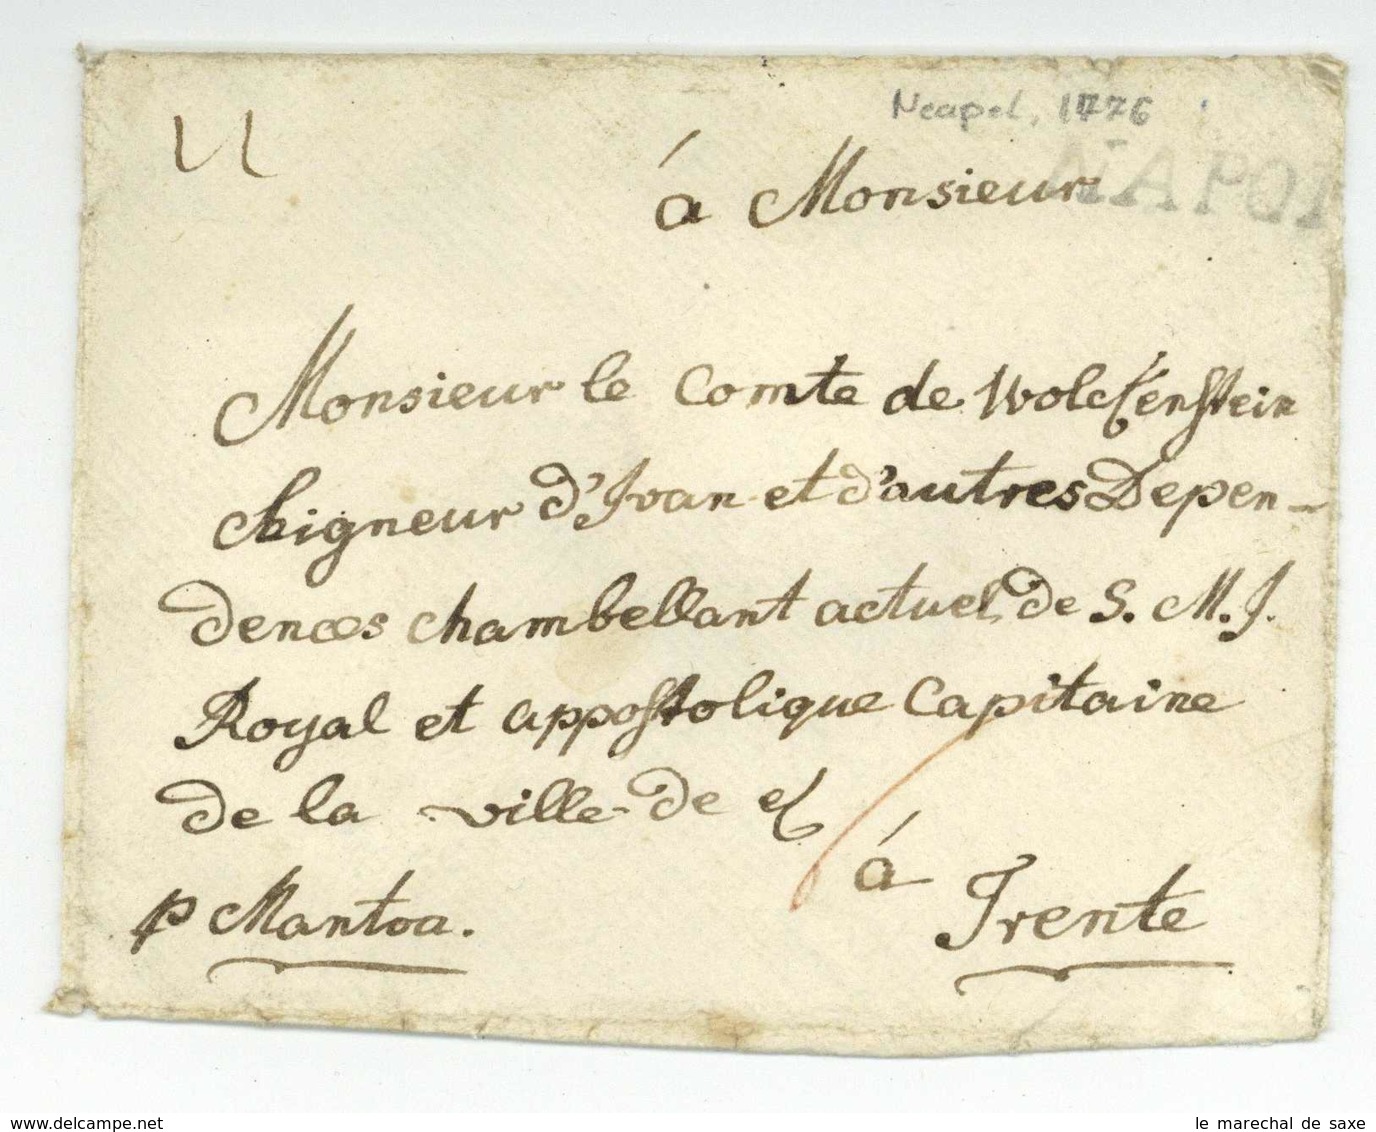 Neapel, 1776
NAPOL
à Monsieur
Monsieur le Comte de Wolckenstein
Seigneur d'Ivan et d'autres Depen-
dences chambellant actuel de S. M. J.
Royal et appostolique Capitaine
de la ville de
à
Trente
p Mantoa.
www.delcampe.net
le marechal de saxe